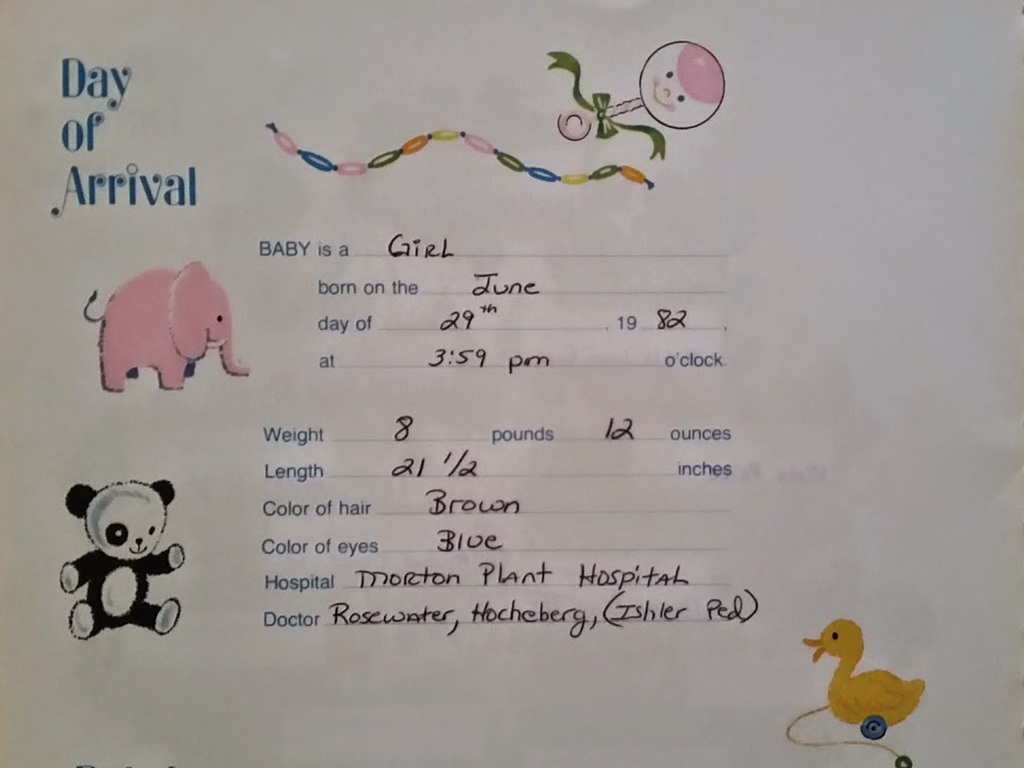 Day
of
Arrival
BABY is a GIRL
born on the June
day of 29th, 19 82,
at 3:59 pm o'clock.
Weight 8 pounds 12 ounces
Length 21 1/2 inches
Color of hair Brown
Color of eyes Blue
Hospital Morton Plant Hospital
Doctor Rosewater, Hocheberg, (Ishler Ped)